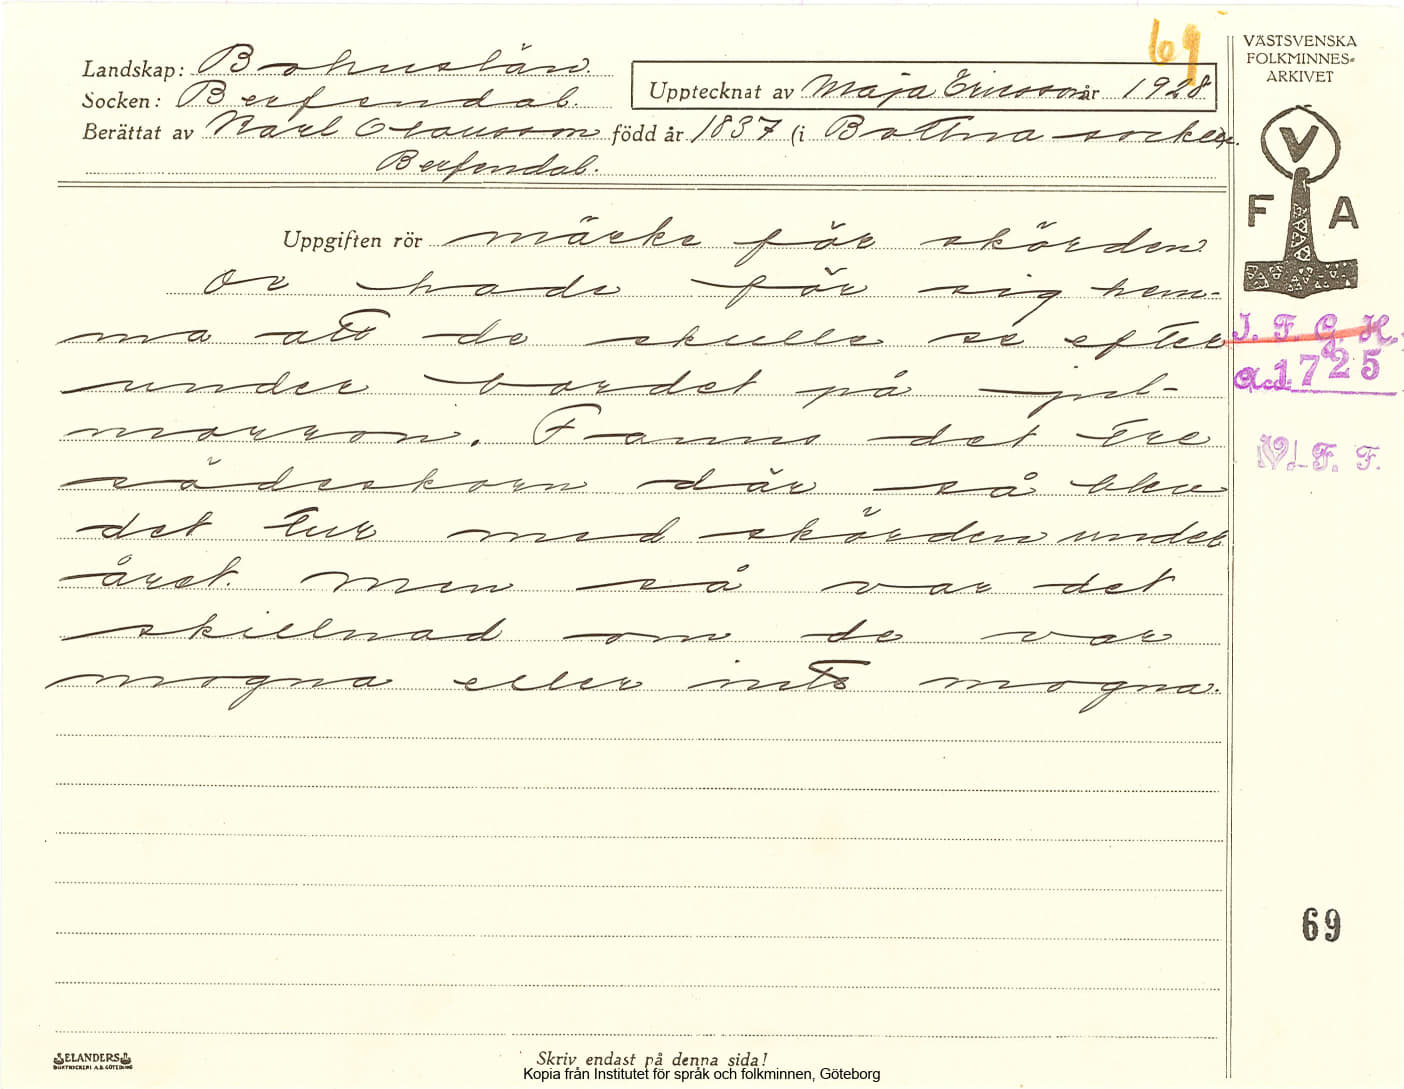 69
Landskap: Bohuslän.
Socken: Berfendal.
Upptecknat av Maja Ericsson år 1928
Berättat av Karl Clausson född år 1837 (i Bottna socken.
Berfendal.
VÄSTSVENSKA
FOLKMINNES-
ARKIVET
V
F A
Uppgiften rör märke för skörden
De hade för sig hem-
ma att de skulle se efter
under bordet på jul-
morron. Fanns det tre
sädeskorn där så blev
det tur med skörden under
året. Men så var det
skillnad om de var
mogna eller inte mogna.
I. F. G. H.
Acc. 1725
F. F.
69
ELANDERS
BOKTRYCKERI A.B. GÖTEBORG
Skriv endast på denna sida!
Kopia från Institutet för språk och folkminnen, Göteborg